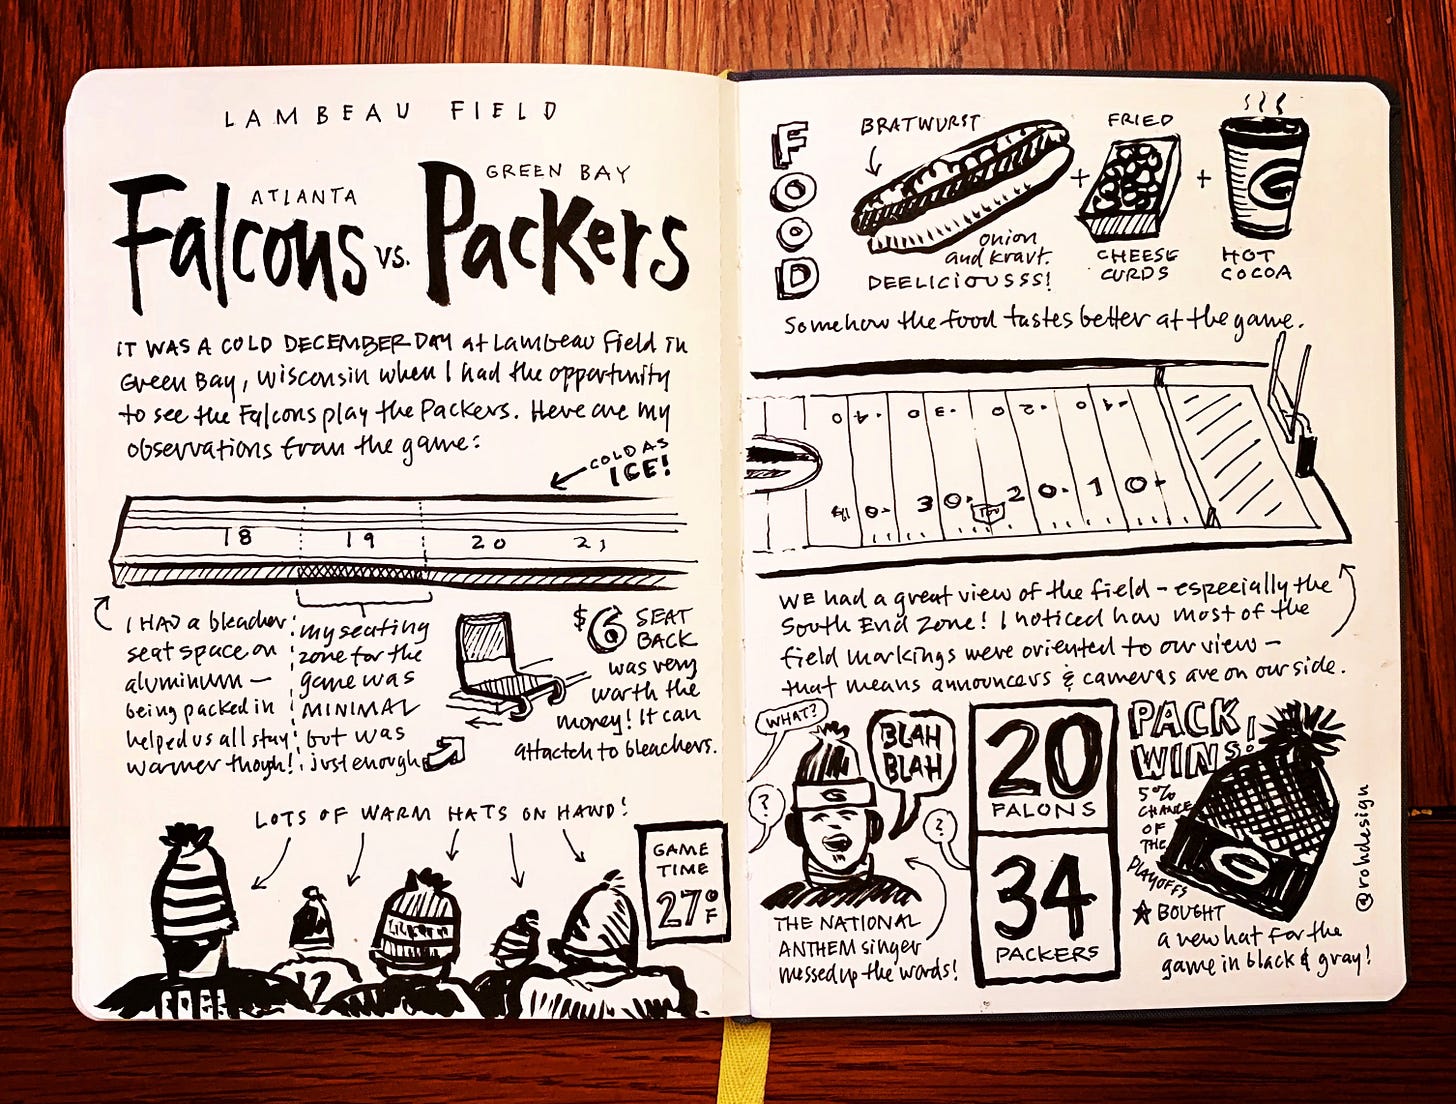 LAMBEAU FIELD
ATLANTA
Falcons vs.
GREEN BAY
Packers
IT WAS A COLD DECEMBER DAY at Lambeau Field in
Green Bay, Wisconsin when I had the opportunity
to see the Falcons play the Packers. Here are my
observations from the game:
COLD AS
ICE!
18 19 20 21
I HAD a bleacher
seat space on
aluminum —
being packed in
helped us all stay
warmer though!
my seating
zone for the
game was
MINIMAL
but was
just enough
$6 SEAT
BACK
was very
worth the
money! It can
attatch to bleachers.
LOTS OF WARM HATS ON HAND!
12
GAME
TIME
27°F
FOOD
BRATWURST
onion
and kraut.
DEELICIOUSSS!
+
FRIED
CHEESE
CURDS
+
G
HOT
COCOA
Somehow the food tastes better at the game.
4 0 3 0 2 0 1 0
WE had a great view of the field – especially the
South End Zone! I noticed how most of the
field markings were oriented to our view –
that means announcers & cameras are on our side.
WHAT?
?
BLAH
BLAH
?
G
THE NATIONAL
ANTHEM singer
messed up the words!
20
FALONS
34
PACKERS
PACK
WINS!
5%
CHANCE
OF
THE
PLAYOFFS
G
★ BOUGHT
a new hat for the
game in black & gray!
@rohdesign